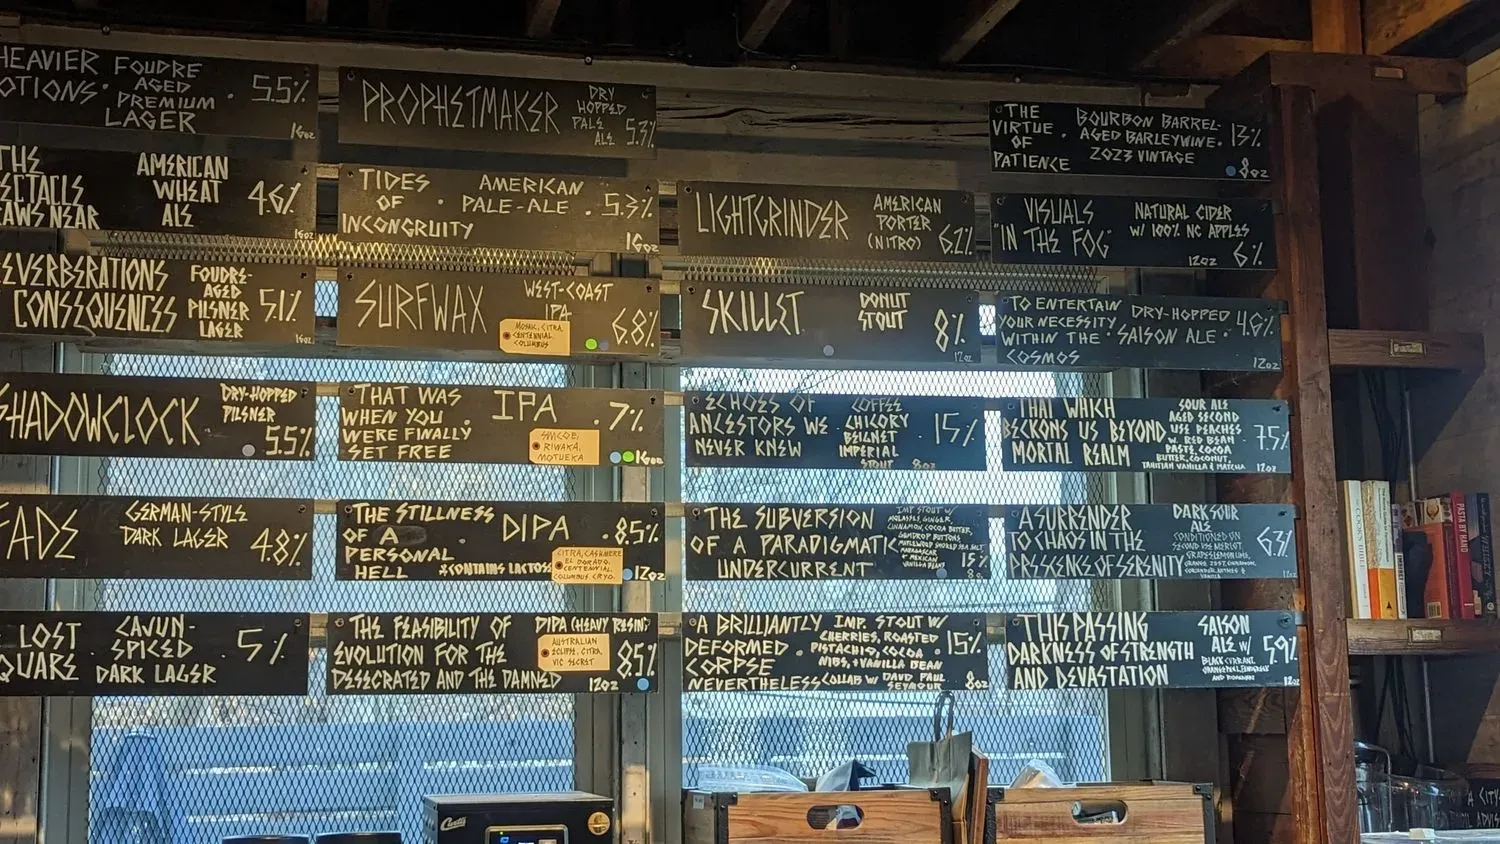 HEAVIER
OTIONS·
FOUDRE
AGED
PREMIUM
LAGER
· 5.5%
16oz
THE
ECTACLE
AWS NEAR
AMERICAN
WHEAT
ALE
4.6%
16oz
EVERBERATIONS
CONSEQUENCES
FOUDRE-
AGED
PILSNER
LAGER
5.1%
16oz
SHADOWCLOCK
DRY-HOPPED
PILSNER
5.5%
FADE
GERMAN-STYLE
DARK LAGER
4.8%
LOST
QUARE
CAJUN-
SPICED
DARK LAGER
5%
PROPHETMAKER
DRY
HOPPED
PALE
ALE
5.3%
TIDES
OF
INCONGRUITY
· AMERICAN
PALE-ALE
· 5.3%
16oz
SURFWAX
WEST-COAST
IPA
MOSAIC, CITRA,
CENTENNIAL
COLUMBUS
6.8%
THAT WAS
WHEN YOU
WERE FINALLY
SET FREE
· IPA
SIMCOE,
RIWAKA,
MOTUEKA
· 7%
16oz
THE STILLNESS
OF A
PERSONAL
HELL
· DIPA
*CONTAINS LACTOSE
CITRA, CASHMERE
EL DORADO,
CENTENNIAL,
COLUMBUS CRYO.
· 8.5%
12oz
THE FEASIBILITY OF
EVOLUTION FOR THE
DESECRATED AND THE DAMNED
DIPA (HEAVY RESIN)
AUSTRALIAN
ECLIPSE, CITRA,
VIC SECRET
8.5%
12oz
LIGHTGRINDER
AMERICAN
PORTER
(NITRO)
6.2%
SKILLET
DONUT
STOUT
8%
12oz
ECHOES OF
ANCESTORS WE
NEVER KNEW
· COFFEE
CHICORY
BEIGNET
IMPERIAL
STOUT
· 15%
8oz
THE SUBVERSION
OF A PARADIGMATIC
UNDERCURRENT
IMP STOUT W/
MOLASSES, GINGER,
CINNAMON, COCOA BUTTER,
GUMDROP BUTTONS
SMOKED SEA SALT
MADAGASCAR
+ MEXICAN
VANILLA BEANS
15%
A BRILLIANTLY
DEFORMED ·
CORPSE
NEVERTHELESS
IMP. STOUT W/
CHERRIES, ROASTED
PISTACHIO, COCOA
NIBS, + VANILLA BEAN
COLLAB W/ DAVID PAUL
SEYMOUR
· 15%
8oz
THE
VIRTUE
OF
PATIENCE
· BOURBON BARREL-
AGED BARLEYWINE.
2023 VINTAGE
13%
8oz
VISUALS
"IN THE FOG"
NATURAL CIDER
W/ 100% NC APPLES
12oz
6%
TO ENTERTAIN
YOUR NECESSITY
WITHIN THE
COSMOS
· DRY-HOPPED
SAISON ALE
· 4.6%
12oz
THAT WHICH
BECKONS US BEYOND
MORTAL REALM
SOUR ALE
AGED SECOND
USE PEACHES
W. RED BEAN
PASTE, COCOA
BUTTER, COCONUT,
TAHITIAN VANILLA & MATCHA
· 7.5%
12oz
A SURRENDER
TO CHAOS IN THE
PRESENCE OF SERENITY
DARK SOUR
ALE
CONDITIONED ON
SECOND USE MERLOT
ORANGE ZEST, CINNAMON,
VANILLA
6.3%
12oz
THIS PASSING
DARKNESS OF STRENGTH
AND DEVASTATION
SAISON
ALE W/
BLACK CURRANT,
5.9%
12oz
Curtis
PASTA BY HAND
A CITY